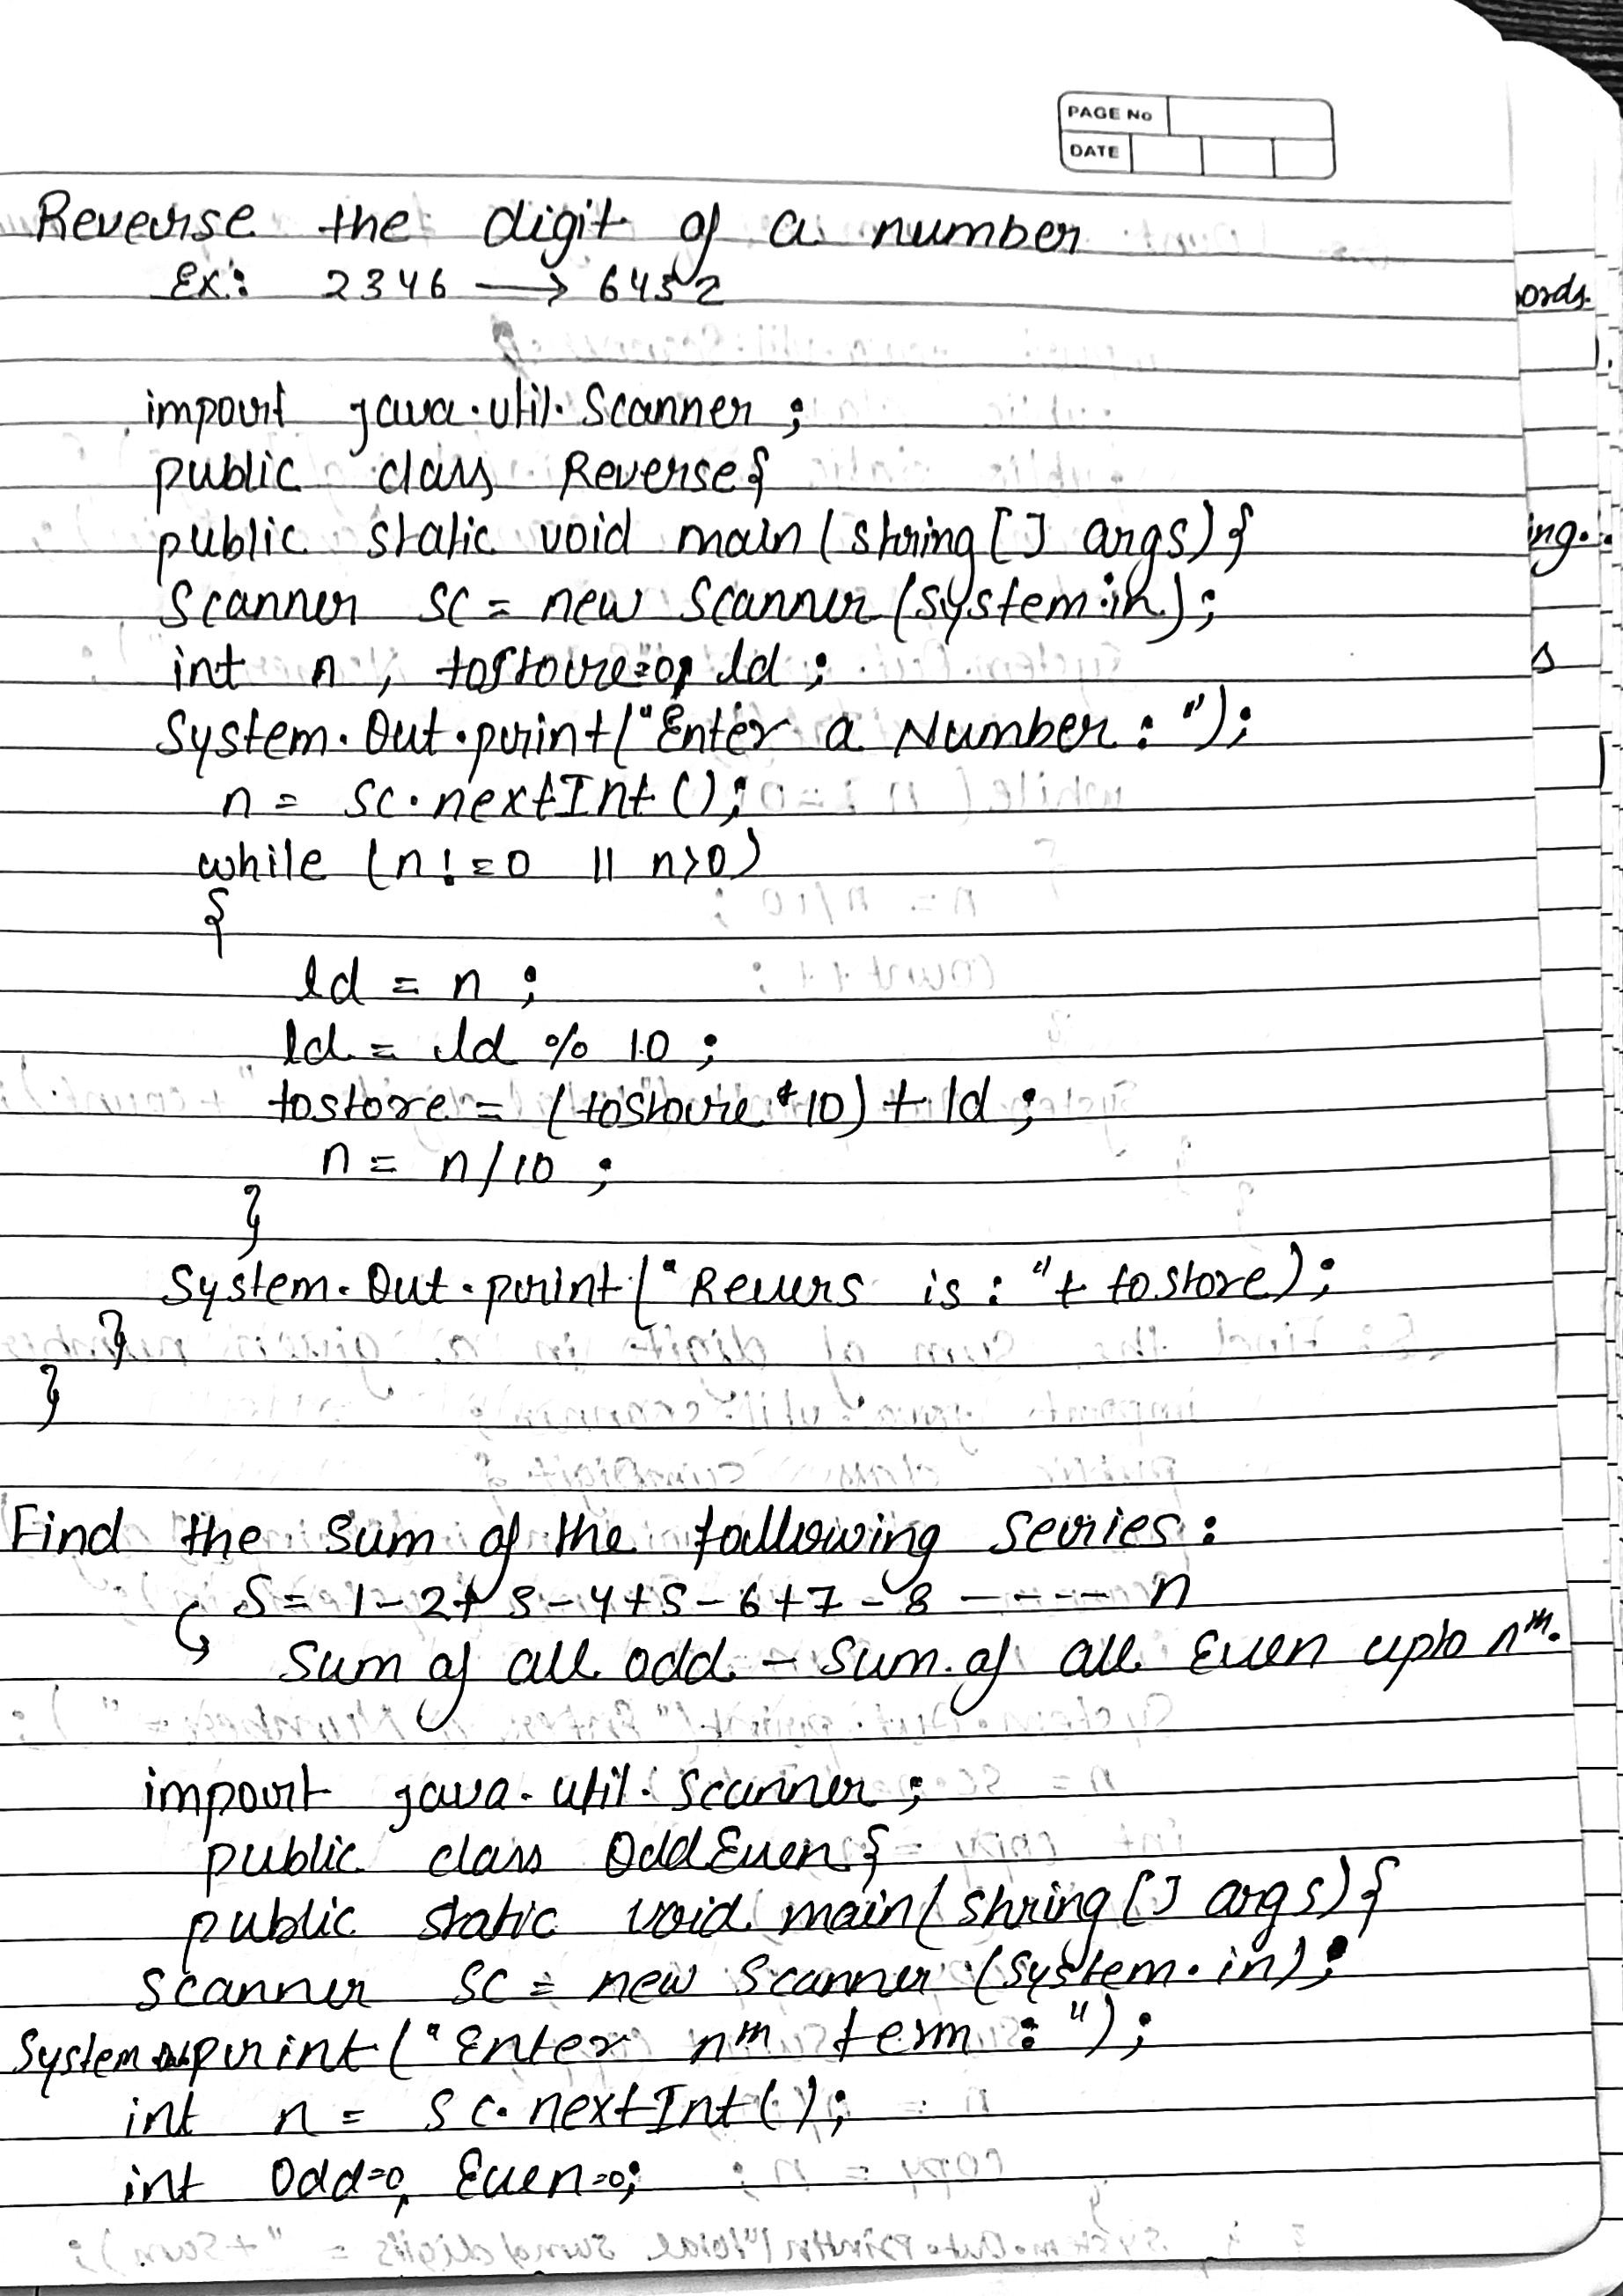 PAGE No
DATE
Reverse the digit of a number
Ex: 2346 → 6432
import java.util.Scanner;
public class Reverse{
public static void main(string[] args){
Scanner sc = new Scanner(system.in);
int n, tostore=0, ld;
System.Out.print("Enter a Number: ");
n = sc.nextInt();
while (n!=0 || n>0)
{
ld = n;
ld = ld % 10;
tostore = (tostore*10) + ld;
n = n/10;
}
System.Out.print("Revers is: "+ tostore);
}
}
Find the sum of the following series:
S = 1-2+3-4+5-6+7-8 ---- n
Sum of all odd - sum of all Even upto nth.
import java.util.Scanner;
public class OddEven{
public static void main(string[] args){
Scanner sc = new Scanner(system.in);
System.out.print("Enter nth term: ");
int n = sc.nextInt();
int Odd=0, Even=0;
ords.
ing.
s